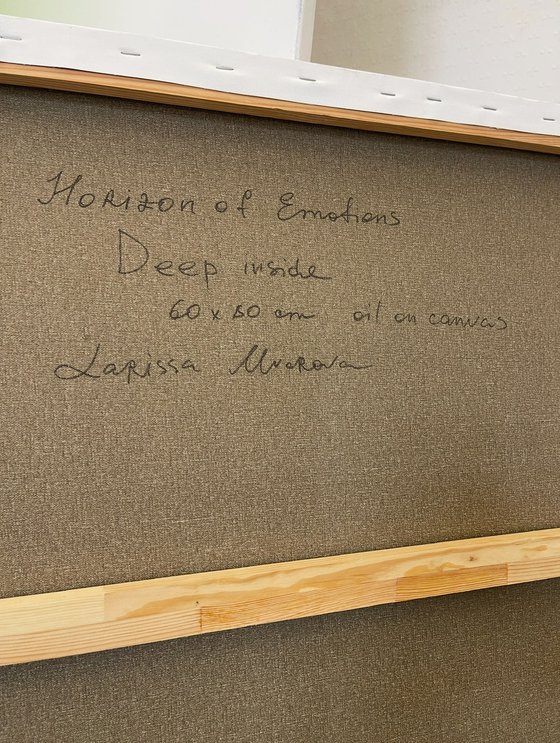 Horizon of Emotions
Deep inside
60 x 80 cm oil on canvas
Larissa Uvarova